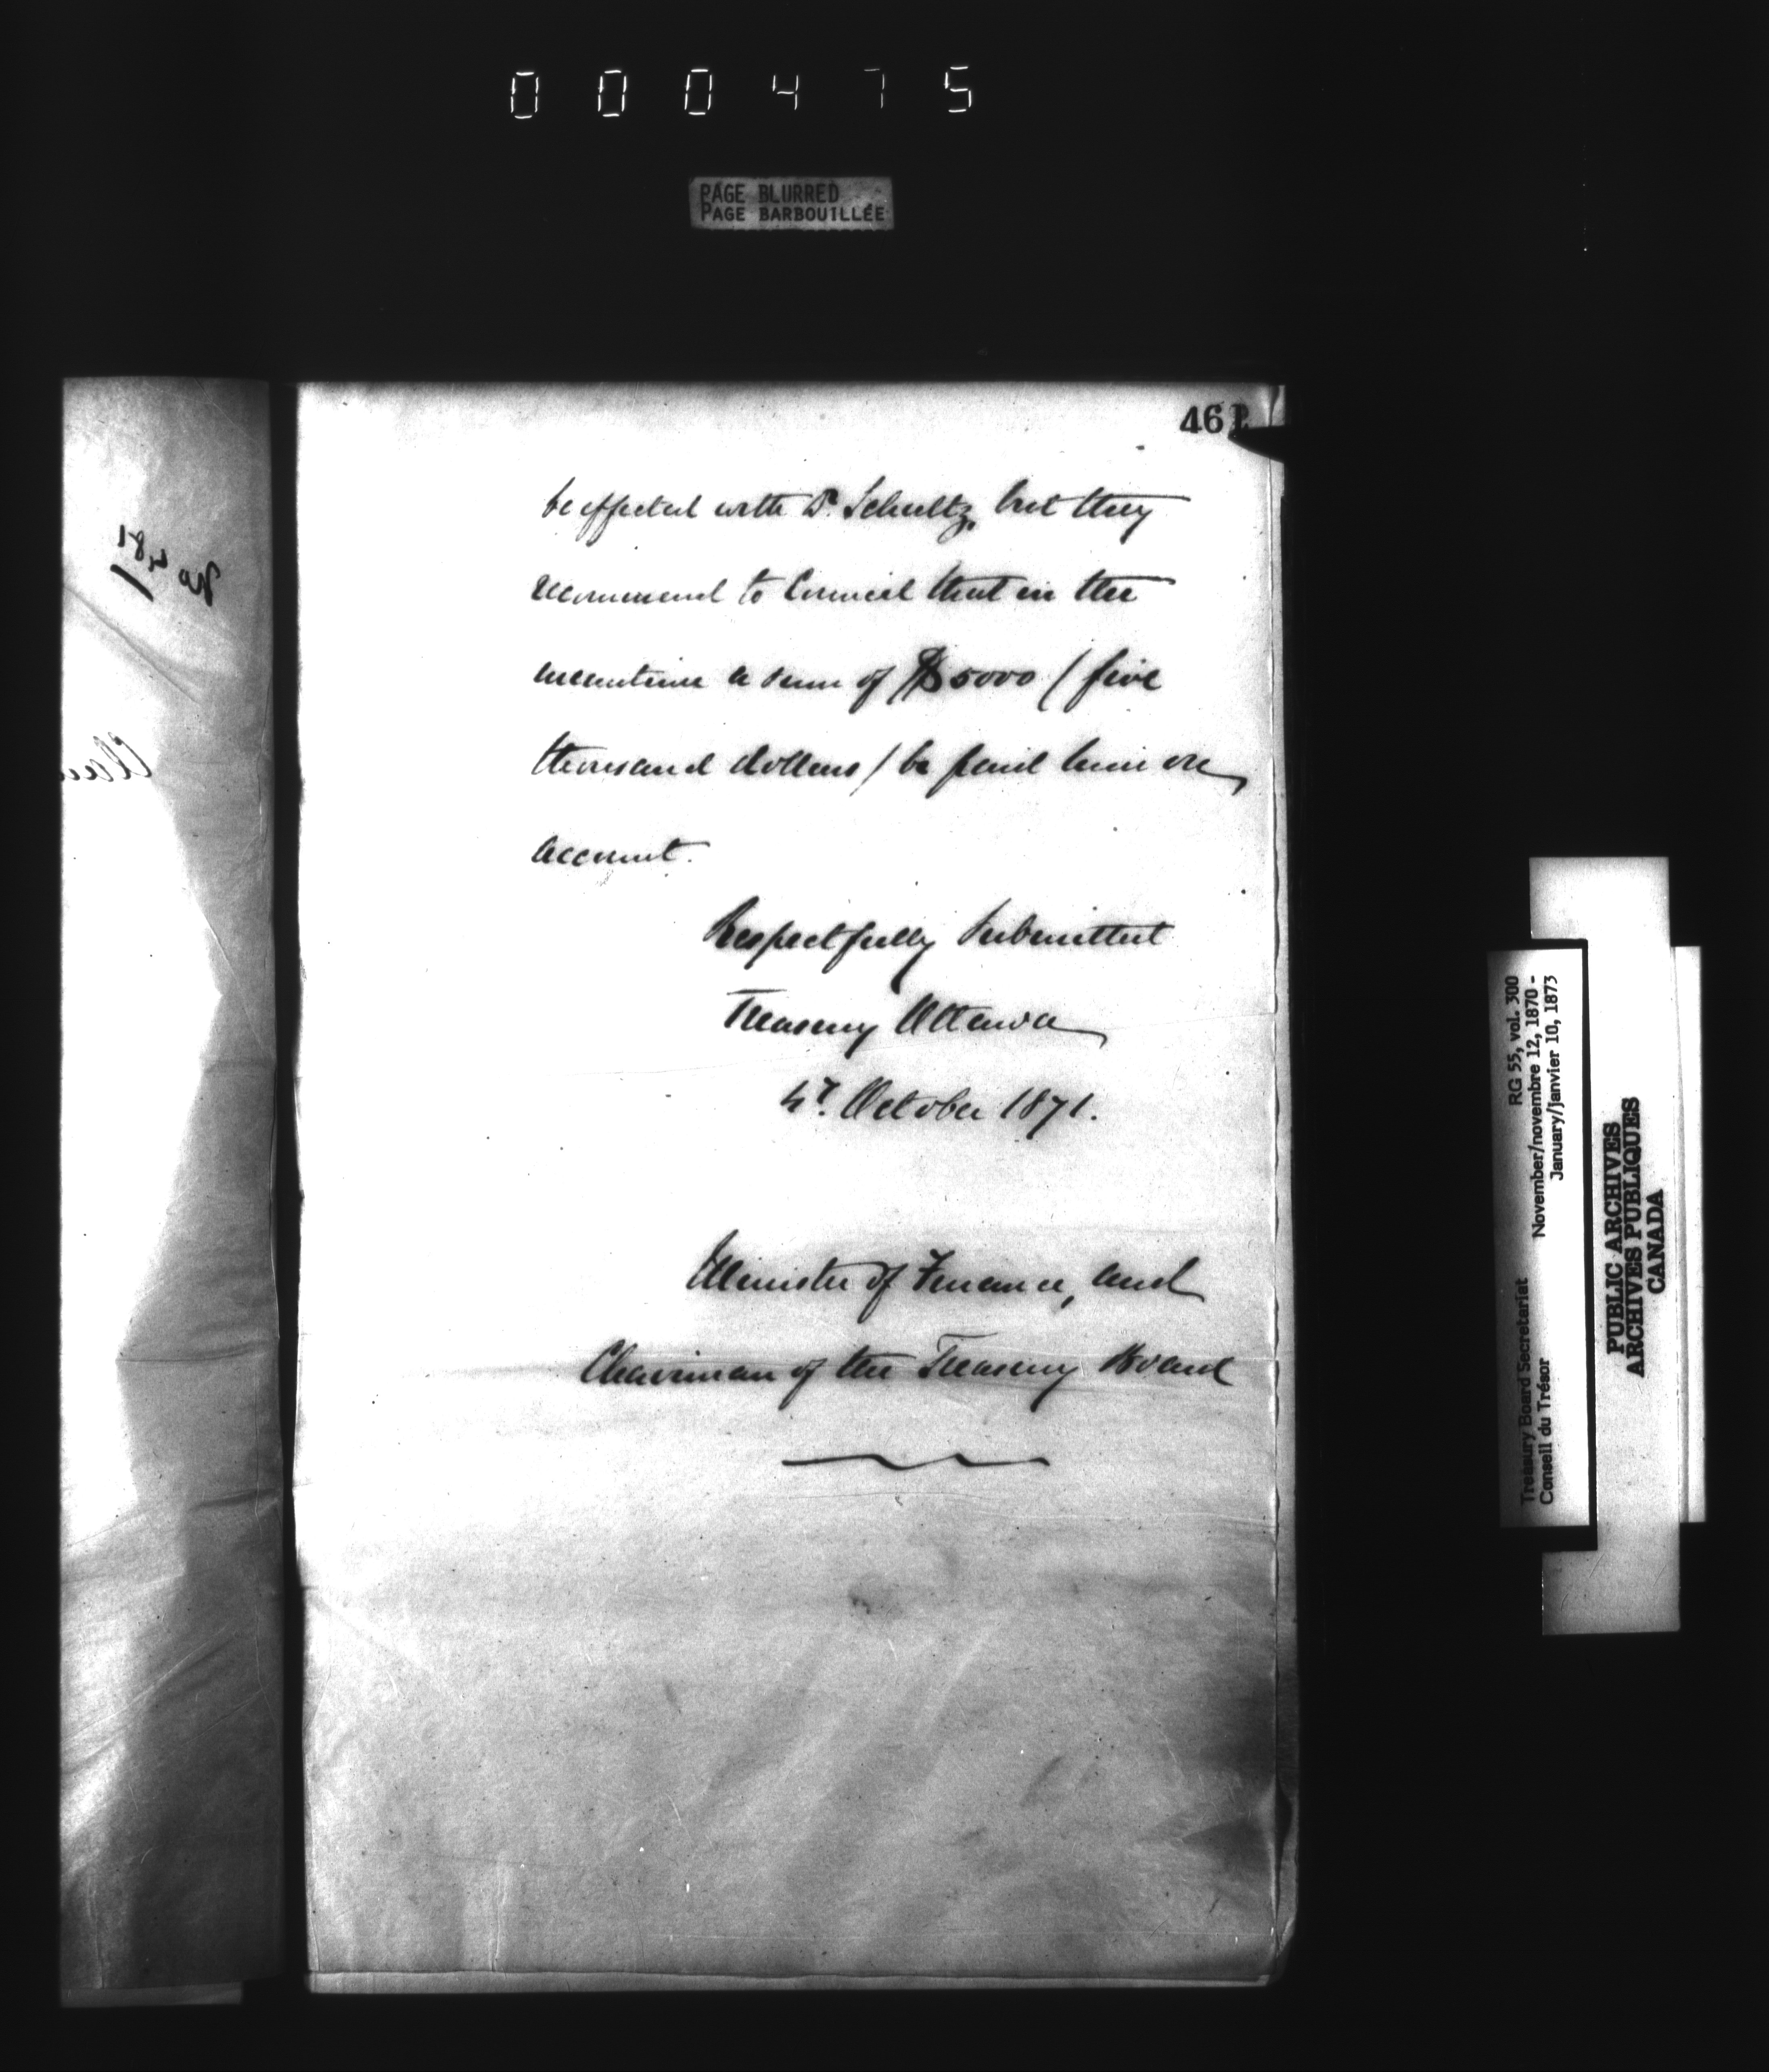 000475
PAGE BLURRED
PAGE BARBOUILLÉE
461
be effected with Dr. Schultz, but they
recommend to Council that in the
meantime a sum of $5000 (five
thousand dollars) be paid him on
account.
Respectfully Submitted
Treasury Ottawa
4th October 1871.
Minister of Finance, and
Chairman of the Treasury Board
No 481
RG 55, vol. 300
Treasury Board Secretariat November/novembre 12, 1870 -
Conseil du Trésor January/janvier 10, 1873
PUBLIC ARCHIVES
ARCHIVES PUBLIQUES
CANADA